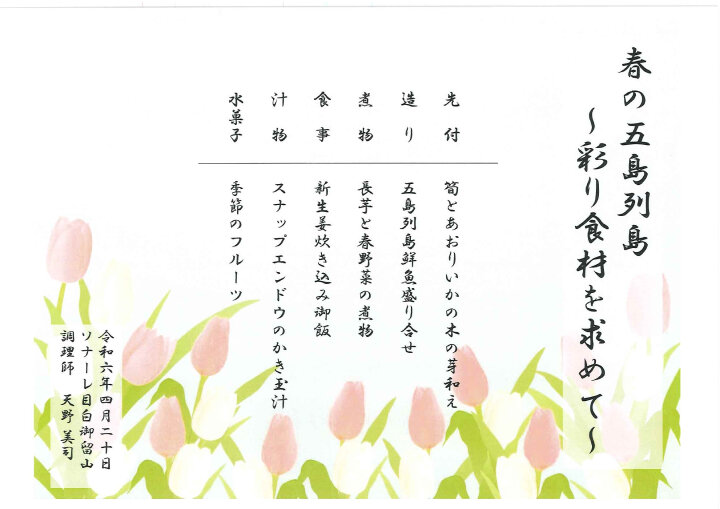 春の五島列島
～彩り食材を求めて～
先付 筍とあおりいかの木の芽和え
造り 五島列島鮮魚盛り合せ
煮物 長芋と春野菜の煮物
食事 新生姜炊き込み御飯
汁物 スナップエンドウのかき玉汁
水菓子 季節のフルーツ
令和六年四月二十日
ソナーレ目白御留山
調理師 天野美司